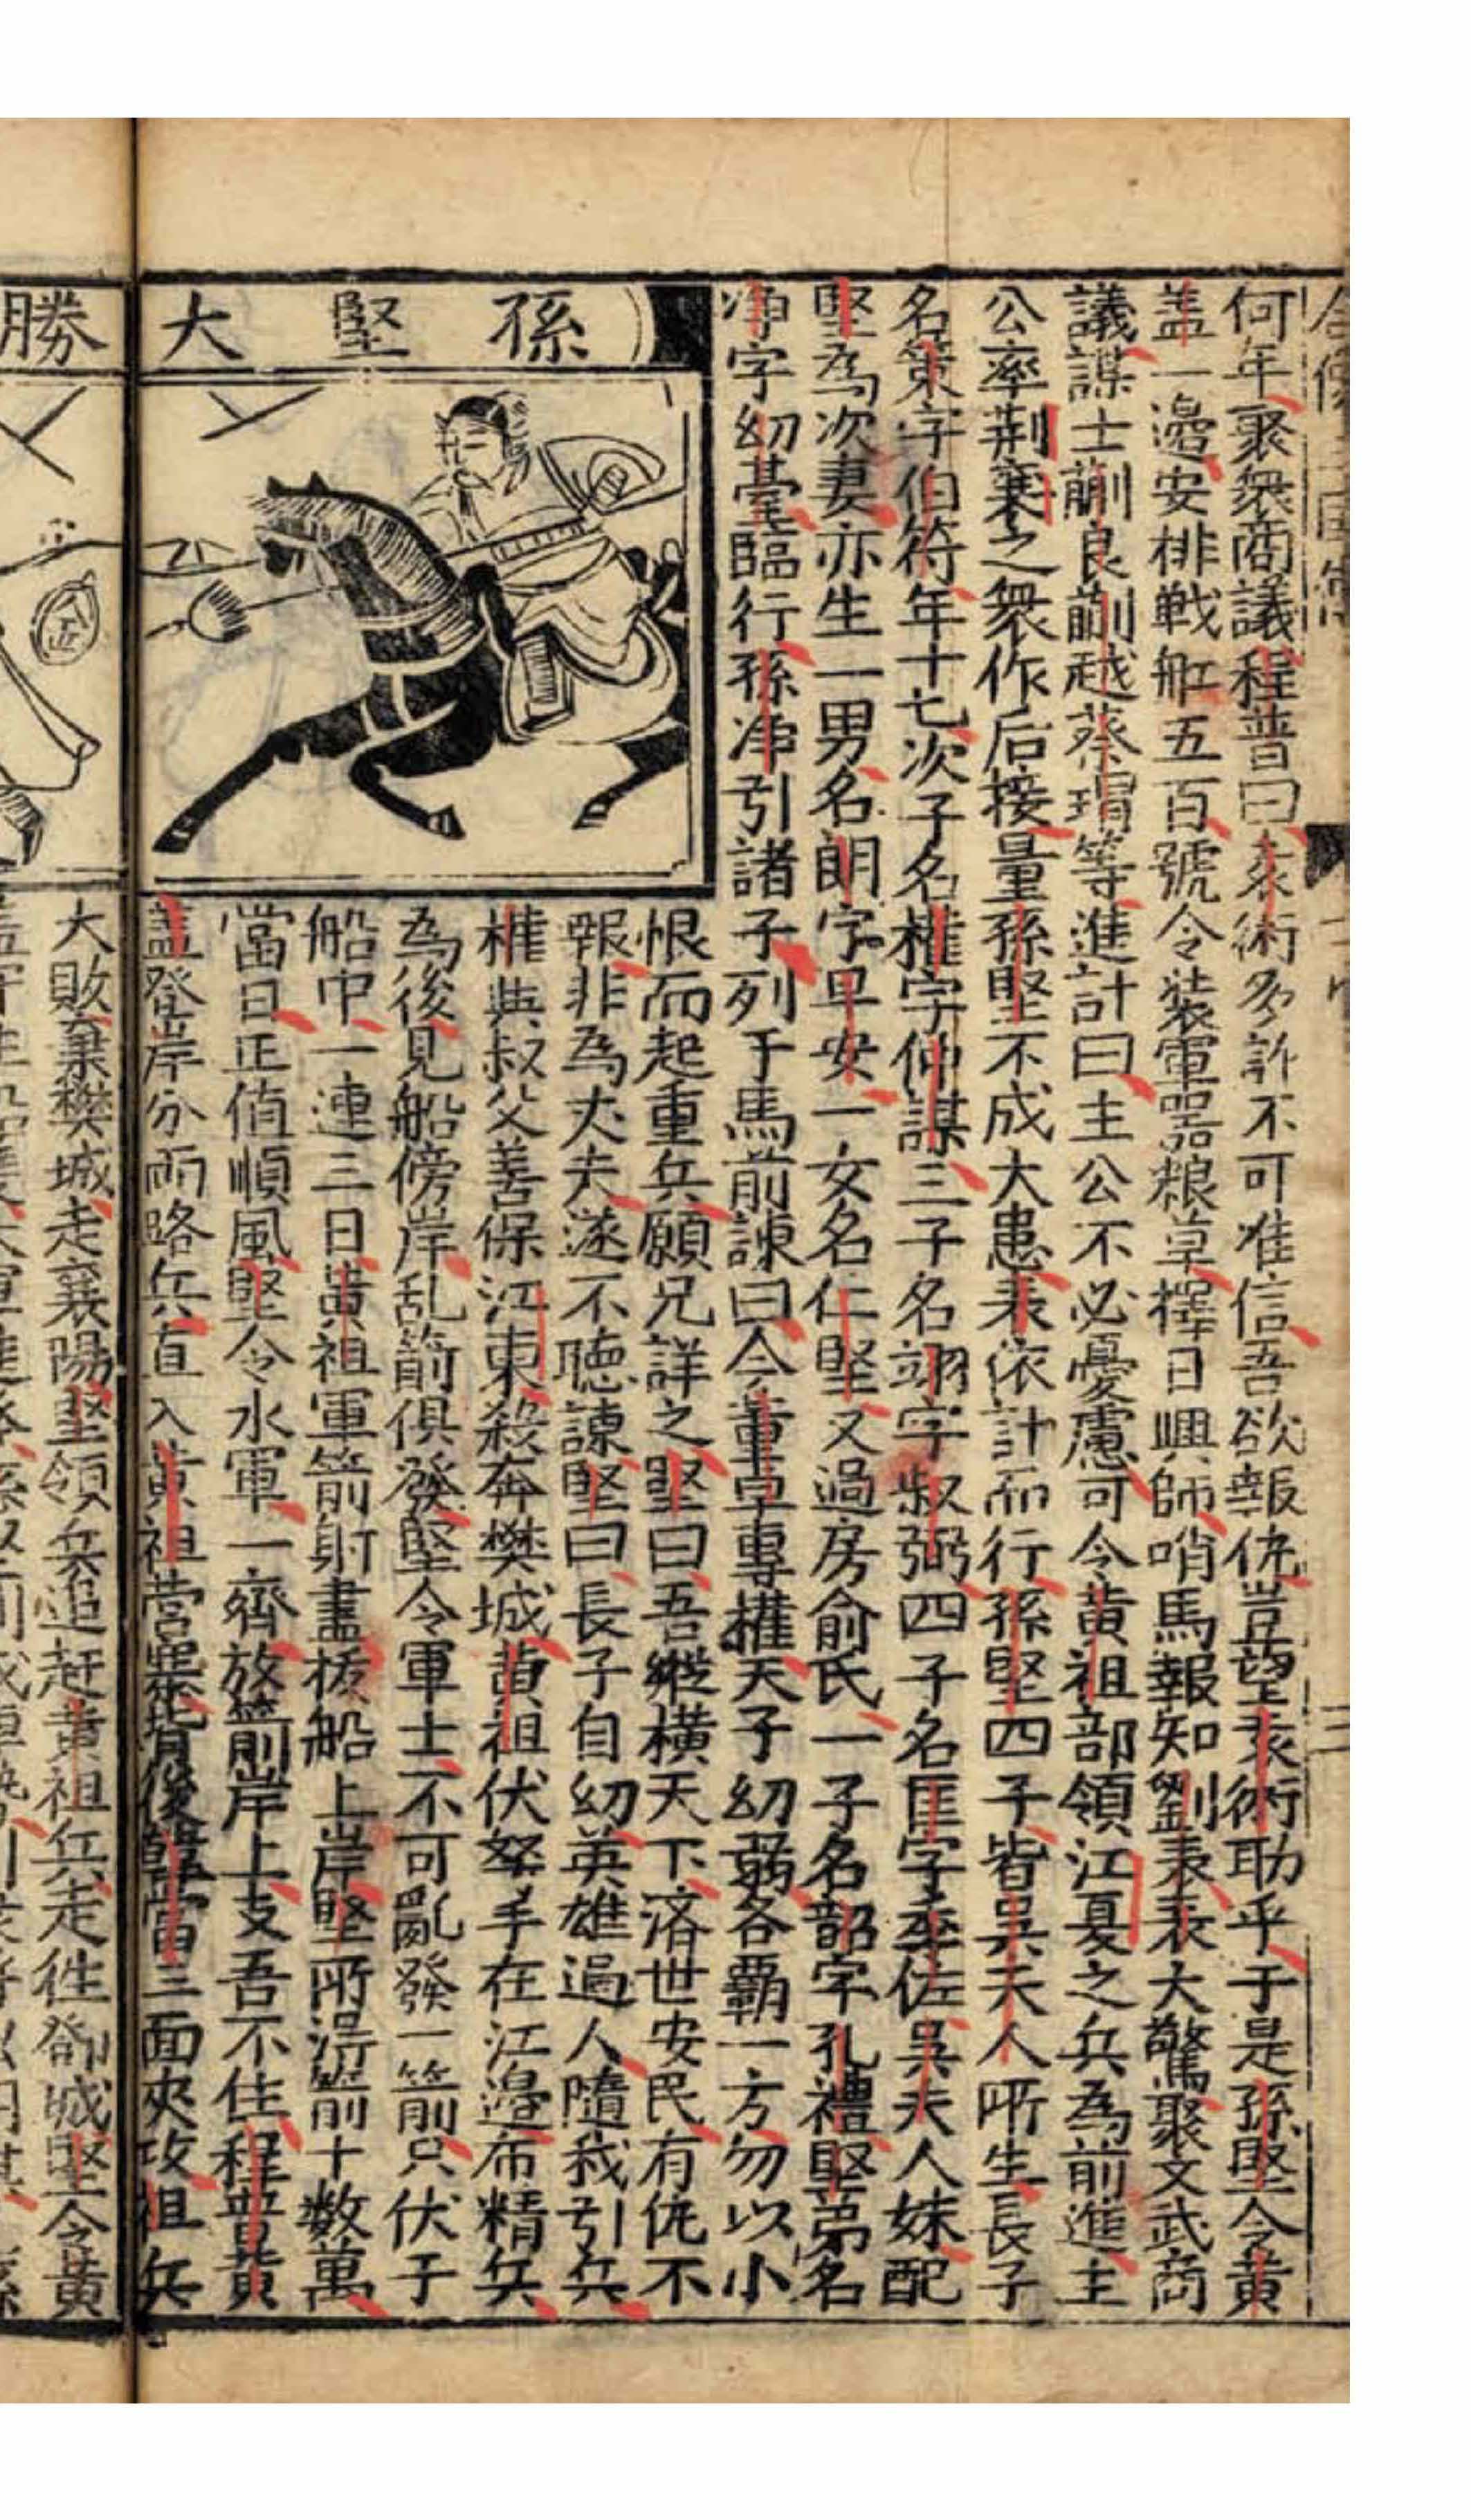 何年聚衆商議程普曰袁術多詐不可准信吾欲報仇豈望袁術助乎于是孫堅令黃
盖一邊安排戦舡五百號令裝軍器粮草擇日興師哨馬報知劉表表大驚聚文武商
議謀士蒯良蒯越蔡瑁等進計曰主公不必憂慮可令黄祖部領江夏之兵為前進主
公率荆襄之衆作后接量孫堅不成大患表依計而行孫堅四子皆吳夫人所生長子
名策字伯符年十七次子名權字仲謀三子名翊字叔弼四子名匡字季佐吳夫人妹配
堅為次妻亦生一男名朗字早安一女名仁堅又過房俞氏一子名韶字孔禮堅弟名
淨字幼臺臨行孫净引諸子列于馬前諫曰今董卓專權天子幼弱各霸一方勿以小
孫堅大
恨而起重兵願兄詳之堅曰吾縱橫天下済世安民有仇不
報非為丈夫遂不聴諫堅曰長子自幼英雄過人隨我引兵
權與叔父善保江東殺奔樊城黄祖伏弩手在江邉布精兵
為後見船傍岸乱箭俱發堅令軍士不可亂發一箭只伏于
船中一連三日黄祖軍箭射盡拔船上岸堅所淂箭十数萬
當日正值順風堅令水軍一齊放箭岸上支吾不住程普黄
盖登岸分兩路兵直入黄祖营寨背後韓當三面夾攻祖兵
勝
大敗棄樊城走襄陽堅領兵追赶黄祖兵走徃鄧城堅令黃